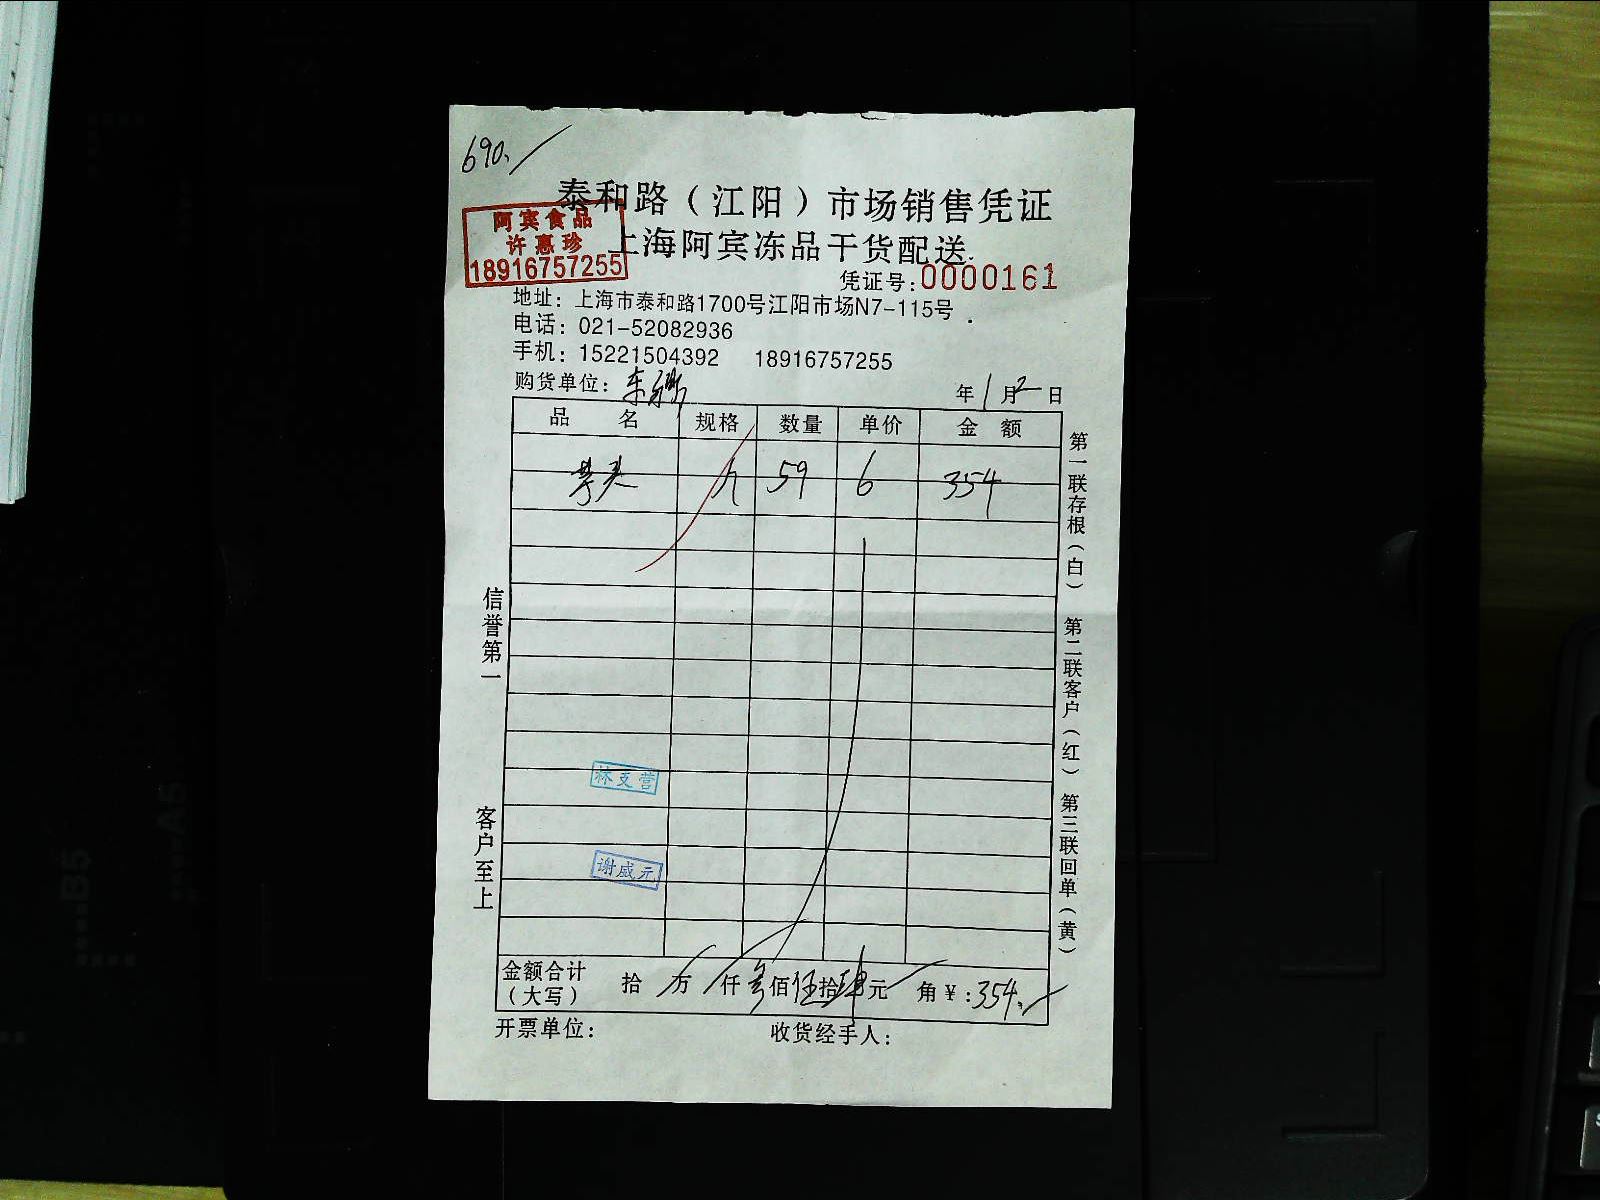 690.
泰和路（江阳）市场销售凭证
阿宾食品
许惠珍
18916757255
上海阿宾冻品干货配送
凭证号:0000161
地址：上海市泰和路1700号江阳市场N7-115号
电话：021-52082936
手机：15221504392 18916757255
购货单位： 年1月2日
品 名 规格 数量 单价 金 额
芋头 斤 59 6 354
第一联存根（白） 第二联客户（红） 第三联回单（黄）
信誉第一 客户至上
林支营
谢盛元
金额合计（大写） 拾 万 仟叁佰伍拾肆元 角¥:354.
开票单位： 收货经手人：
B5
A5